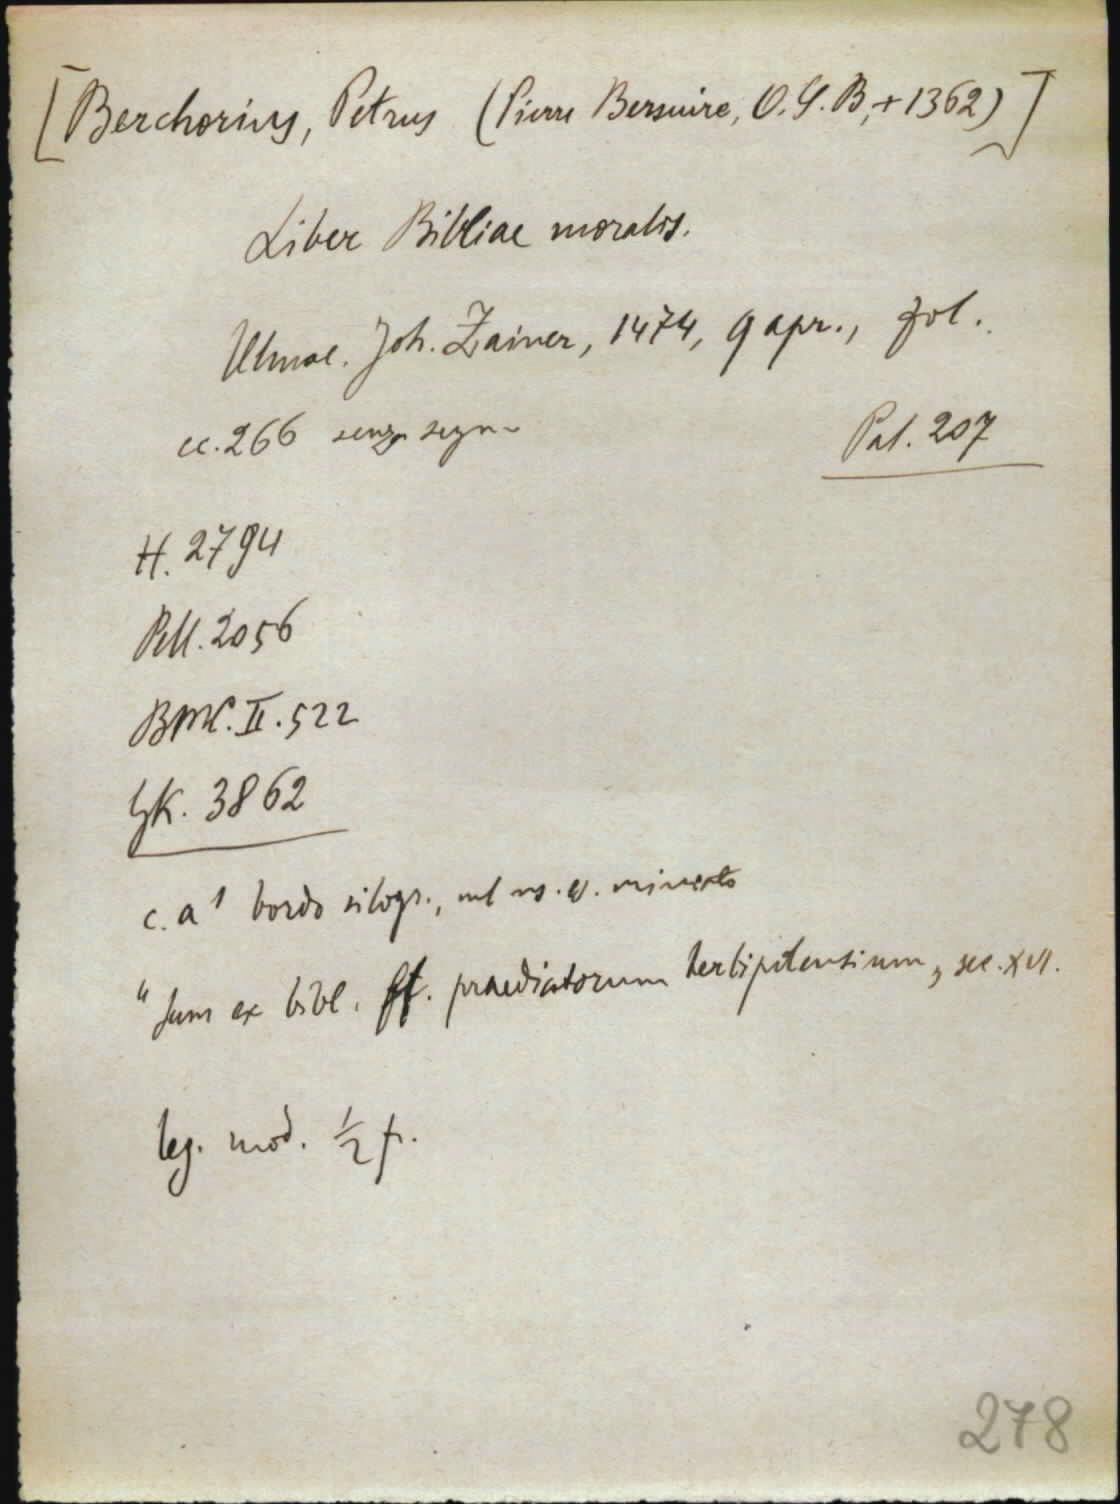 [Berchorius, Petrus (Pierre Bersuire, O.S.B, + 1362)]
Liber Bibliae moralis.
Ulmae. Joh. Zainer, 1474, 9 apr., fol.
cc. 266 senza segn.
Pal. 207
H. 2794
Pell. 2056
BMC. II. 522
GK. 3862
c. a 1 bordo silogr., nel ms. miniato
"Sum ex bibl. ff. praedicatorum herbipolensium, sec. XVI.
leg. mod. ½ p.
278